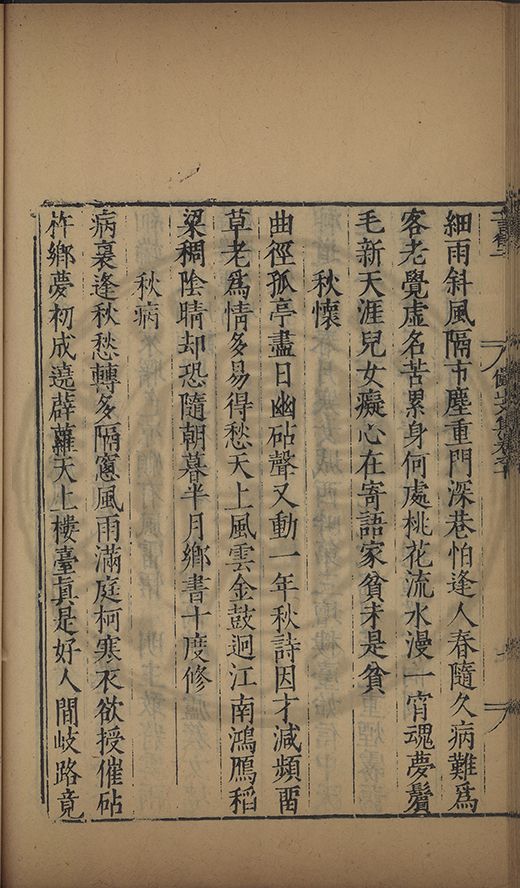 細雨斜風隔市塵重門深巷怕逢人春隨久病難爲
客老覺虛名苦累身何處桃花流水漫一宵魂夢鬢
毛新天涯兒女癡心在寄語家貧未是貧
秋懷
曲徑孤亭盡日幽砧聲又動一年秋詩因才減頻畱
草老爲情多易得愁天上風雲金鼓迥江南鴻鴈稻
梁稠陰晴却恐隨朝暮半月鄉書十度修
秋病
病裏逢秋愁轉多隔窻風雨滿庭柯寒衣欲授催砧
杵鄉夢初成遶薜蘿天上樓臺眞是好人間岐路竟